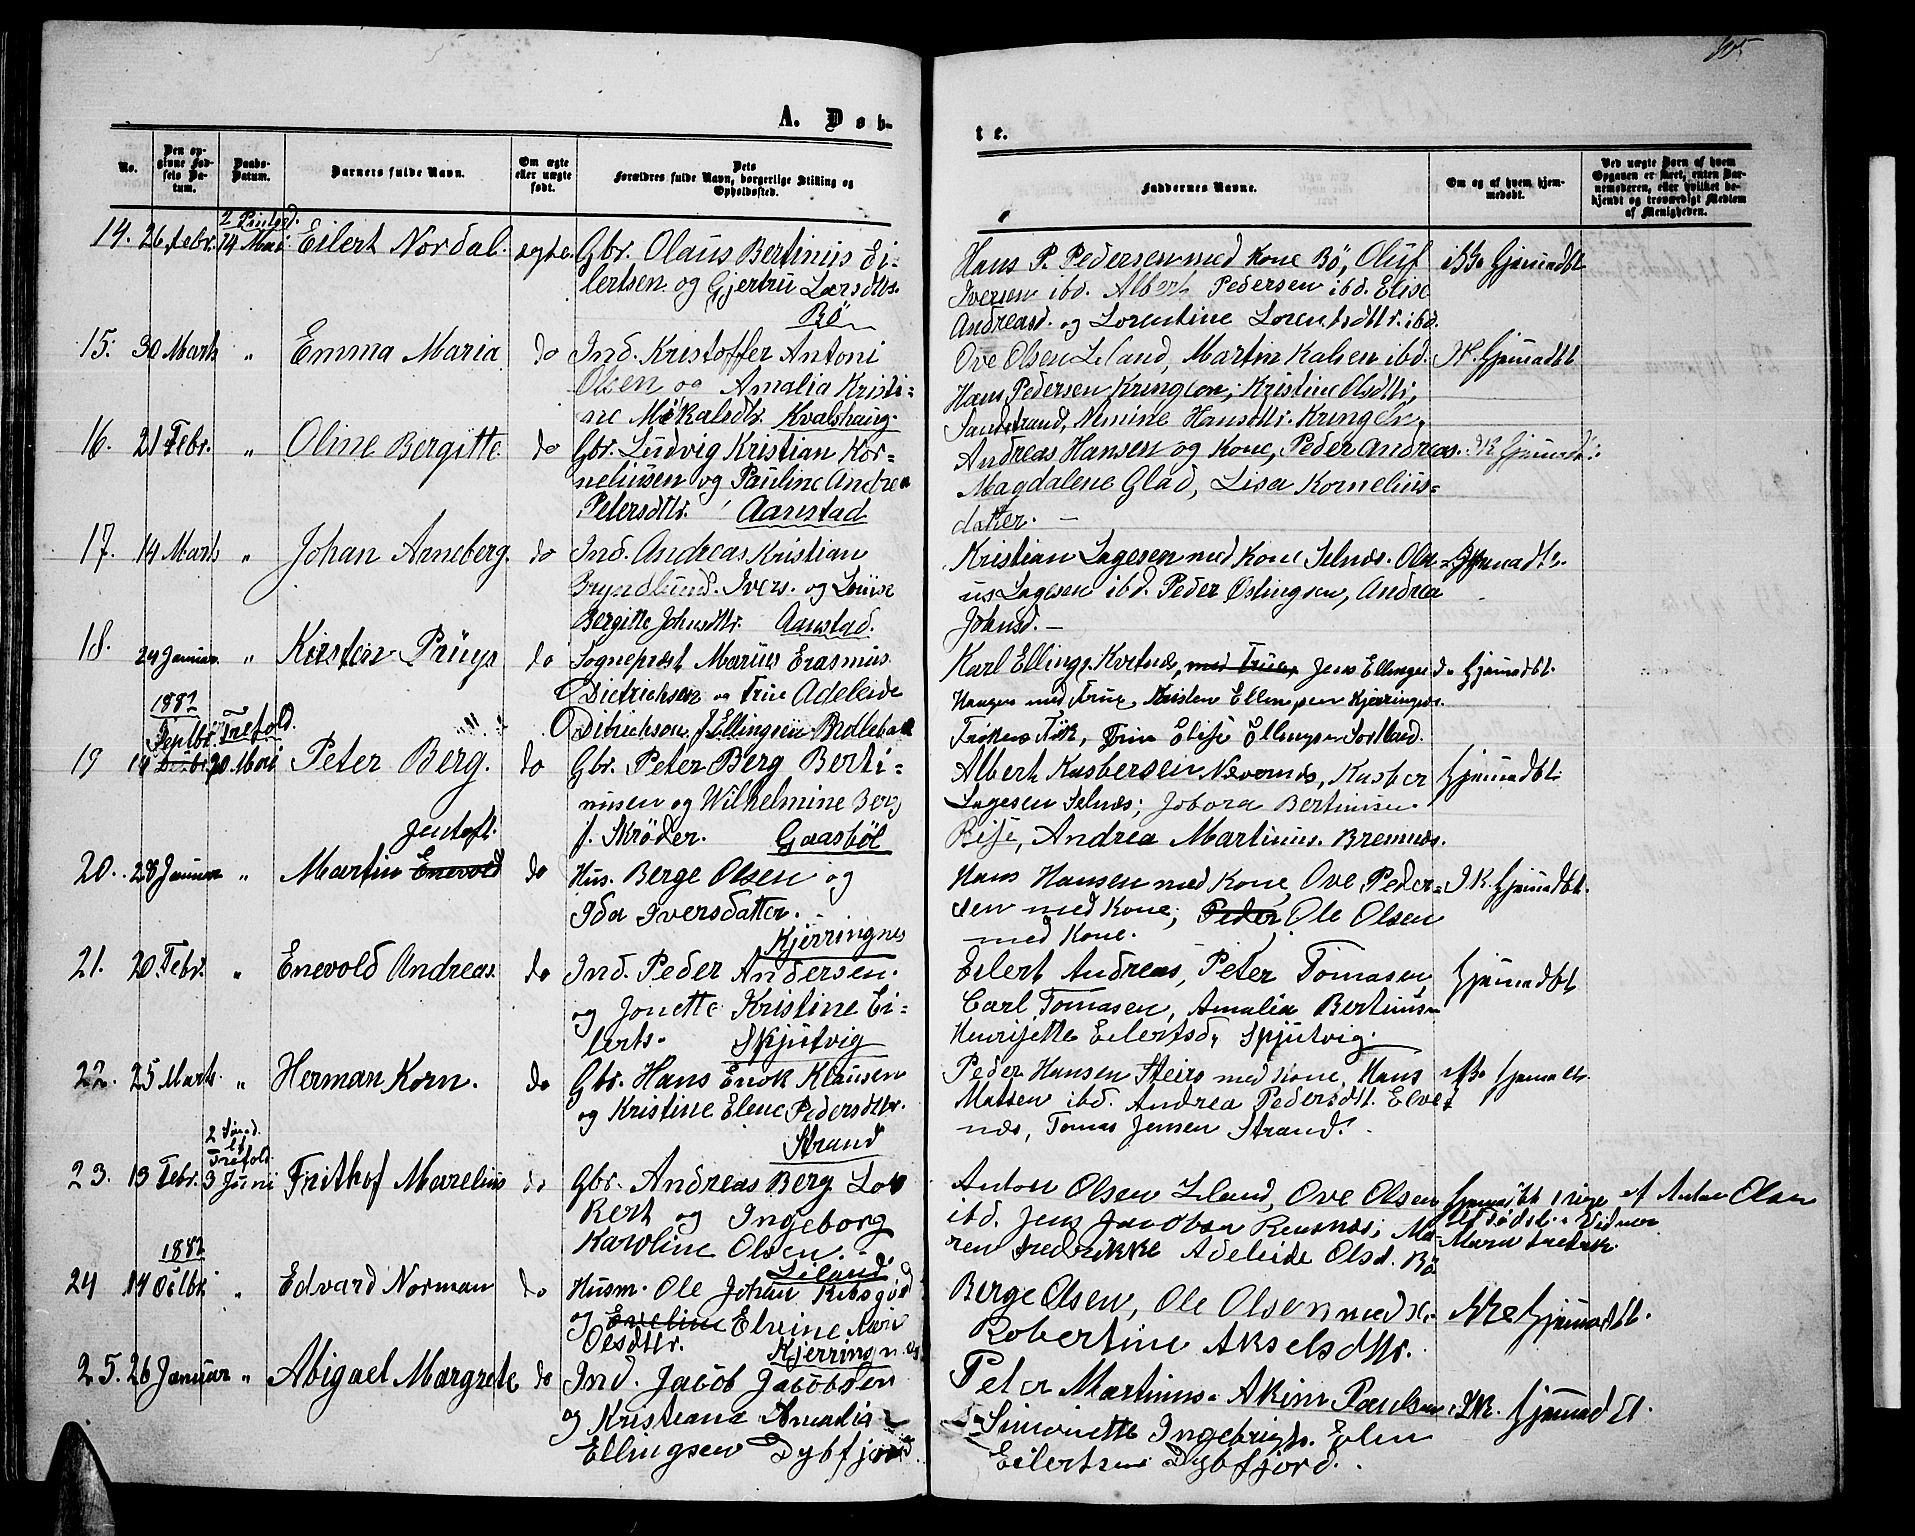 A. Døb-
te.
No.
Den op-
givne Fød-
sels Da-
tum.
Daabs-
Datum.
Barnets fulde Navn.
Om ægte
eller uægte
født.
Dets
Forældres fulde Navn, borgerlige Stilling og
Opholdssted.
Faddernes Navne.
Om og af hvem hjem-
medøbt.
Ved uægte Børn af hvem
Opgaven er skeet, enten Bar-
nemoderen, eller hvilket be-
kjendt og troværdigt Medlem
af Menigheden.
14. 26 Febr. 2 Pintsed. 14 Mai Eilert Nordal. ægte. Gbr. Olaus Bertinus Ei-
lertsen og Gjertru Larsdtr.
Bø
Hans P. Pedersen med Kone Bø, Oluf
Iversen ibd. Albert Pedersen ibd. Elise
Andreasd. og Lorentine Lorentsdtr. ibd.
15. 30 Marts " Emma Maria do Ind. Kristoffer Antoni
Olsen og Amalia Kristi-
ne Mikalsdtr. Kvalshaug.
Ove Olsen Leland, Martin Kalsen ibd.
Hans Pedersen Kringlen, Kristine Olsdtr,
Sandstrand, Nimine Hansdtr. Kringlen.
16. 21 Febr. " Oline Bergitte do Gbr. Ludvig Kristian Kor-
neliusen og Pauline Andrea
Petersdtr. Aanstad
Andreas Hansen og Kone, Peder Andreas.
Magdalene Glad, Lisa Kornelius-
datter. —
17. 14 Marts " Johan Arneberg. do Ind. Andreas Kristian
Gryndlund. Ivers. og Louise
Bergitte Johnsdtr. Aanstad.
Kristian Lagesen med Kone Selnæs. Ola-
us Lagesen ibd. Peder Ostingsen, Andrea
Johnsd. —
18. 24 Januar. " Kirsten Prüys do Sogneprest Marius Erasmus
Dietrichson og Frue Adeleide
Ditrichson f. Ellingsen
Karl Ellings. Kvitnæs, med Frue, Jens Ellingsen
Haagen med Frue, Kristen Ellingsen Kjerringnæs.
Elise Ellingsen Sortland.
1882
19 14 Septbr. Trefold. 20 Mai Peter Berg. do Gbr. Peter Berg Berti-
nusen og Wilhelmine Berg
f. Skrøder. Gaasbøl
Albert Kasbersen Nævernes, Kasber
Lagesen Selnæs; Jobora Bertinusen
Reise, Andrea Martinus. Bremnæs.
Gjemmedbt.
Jentoft.
20. 28 Januar " Martin Enevold do Hus. Berge Olsen og
Ida Iversdatter.
Kjerringnes
Hans Hansen med Kone, Ove Peder-
sen med Kone, Peder Ole Olsen
med Kone.
21. 20 Febr. " Enevold Andreas. do Ind. Peder Andersen
og Jonette Kristine Ei-
lerts. Skjutvig
Eilert Andreas, Peter Tomasen
Carl Tomasen, Amalia Bertinus-
Henrijette Eilertsd, Skjutvig.
22. 25 Marts " Herman Korn. do Gbr. Hans Enok Klausen
og Kristine Elene Pedersdtr.
Strand
Peder Hansen Steirs med Kone, Hans
Matsen ibd. Andrea Pedersdt. Elvet
næs, Tomas Jensen Strand.
23. 13 Febr. 2 Sønd. ef. Trefold. 3 Juni Frithof Marelius do Gbr. Andreas Berg Lor
Kert og Ingeborg
Karoline Olsen.
Leland
Anton Olsen Leland, Ove Olsen
ibd. Jens Jacobsen Reusnæs; Ma-
ren Fredrikke Adeleide Olsd. Bø
af Anton Olsen
1882
24 14 Octbr " Edvard Norman do Husm. Ole Johan
og Eveline Elvine
Olsdtr. Kjerringnæs
Berge Olsen, Ole Olsen med K.
Robertine Akselsdtr.
25. 26 Januar " Abigael Margrete do Ind. Jacob Jacobsen
og Kristiana Amadis
Ellingsen Dybfjord
Peter Martinus. Akim Paulsen
Simonette Ingebrigts. Elen
Eilertsen Dybfjord.